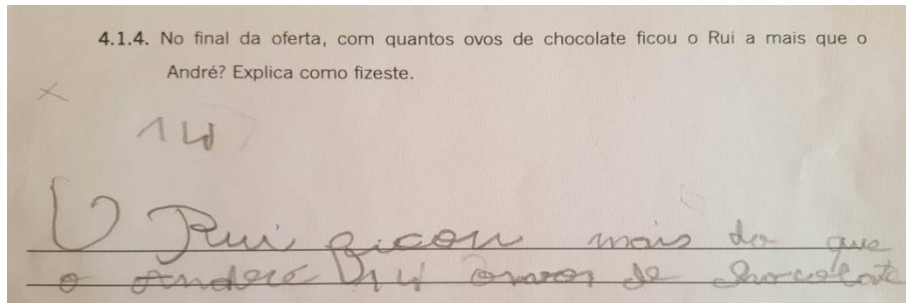 4.1.4. No final da oferta, com quantos ovos de chocolate ficou o Rui a mais que o
André? Explica como fizeste.
14
O Rui ficou mais do que
o Anderé 14 ovos de chocolate